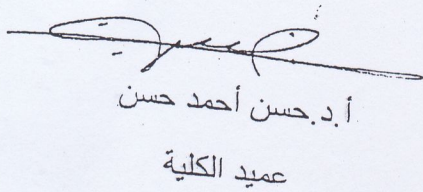 أ.د.حسن أحمد حسن
عميد الكلية